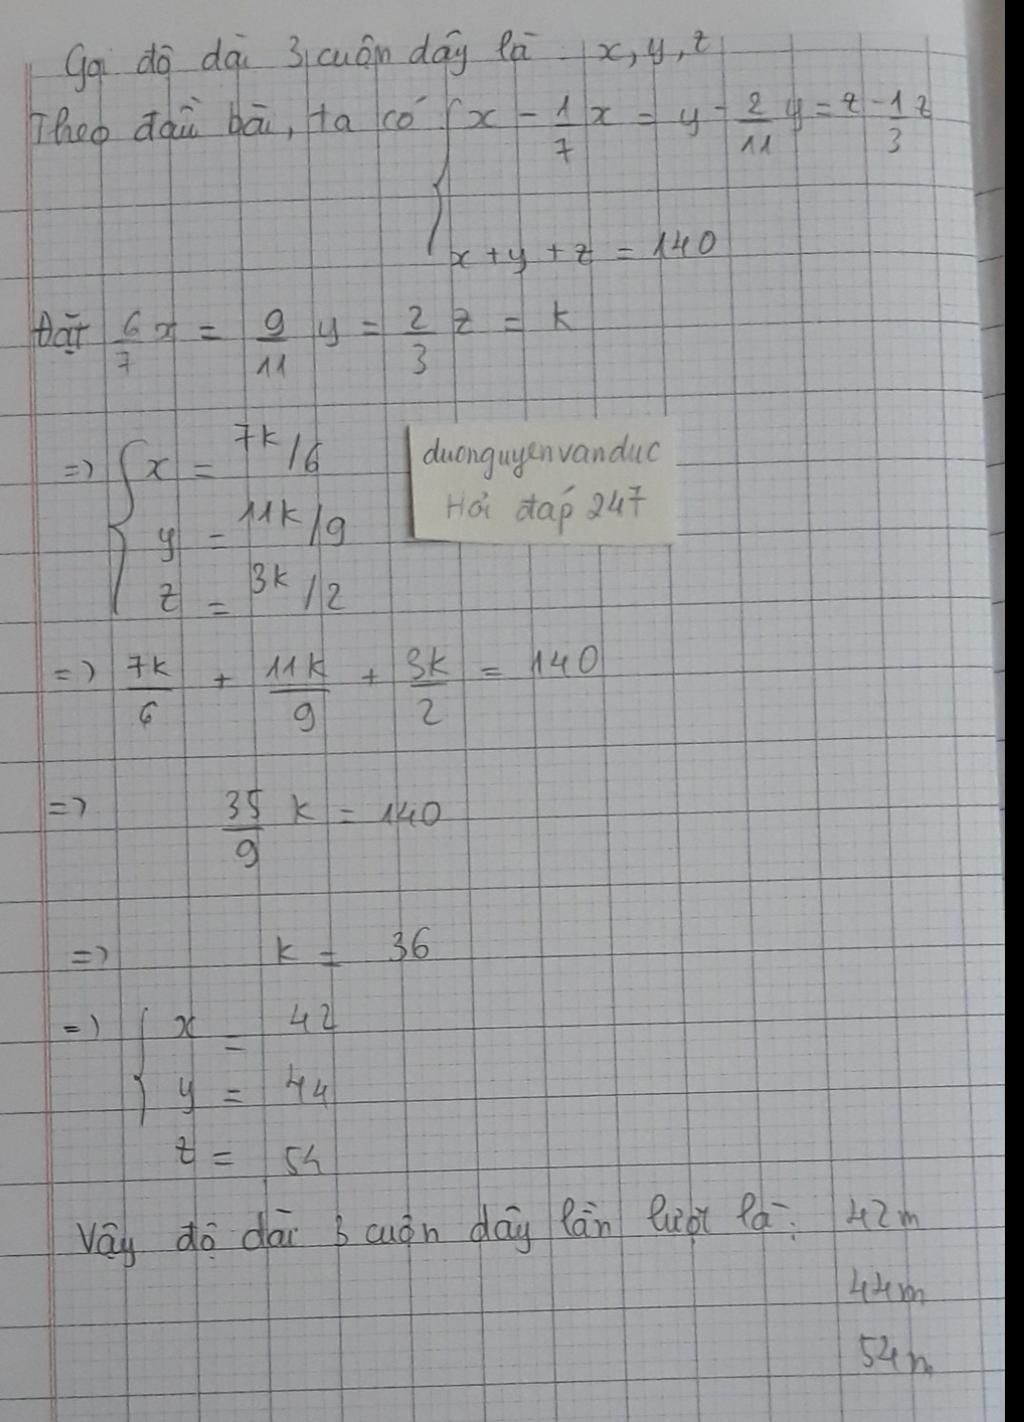 Gọi độ dài 3 cuộn dây là x, y, z
Theo đầu bài, ta có { x - 1/7 x = y - 2/11 y = z - 1/3 z
x + y + z = 140
Đặt 6/7 x = 9/11 y = 2/3 z = k
=> { x = 7k/6
y = 11k/9
z = 3k/2
duonguyenvanduc
Hỏi đáp 247
=> 7k/6 + 11k/9 + 3k/2 = 140
=> 35/9 k = 140
=> k = 36
=> { x = 42
y = 44
z = 54
Vậy độ dài 3 cuộn dây lần lượt là: 42m
44m
54m